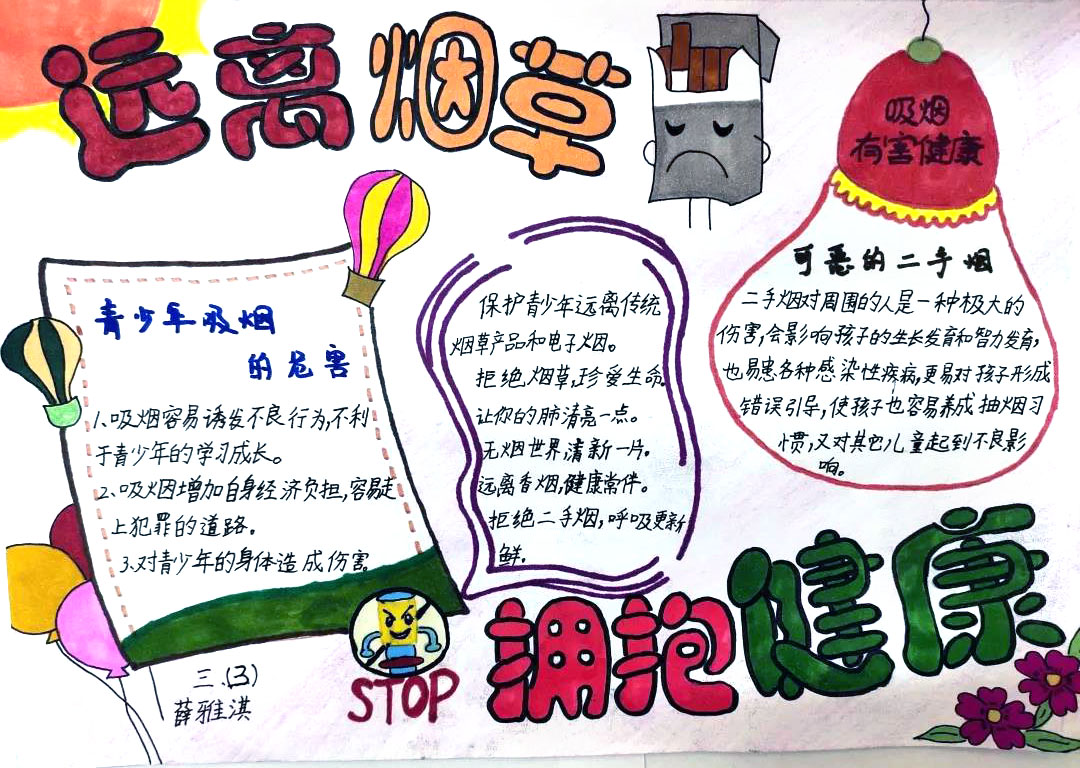 远离烟草
吸烟
有害健康
青少年吸烟
的危害
1、吸烟容易诱发不良行为,不利
于青少年的学习成长。
2、吸烟增加自身经济负担,容易走
上犯罪的道路。
3、对青少年的身体造成伤害。
保护青少年远离传统
烟草产品和电子烟。
拒绝烟草,珍爱生命。
让你的肺清亮一点。
无烟世界,清新一片。
远离香烟,健康常伴。
拒绝二手烟,呼吸更新
鲜.
可恶的二手烟
二手烟对周围的人是一种极大的
伤害,会影响孩子的生长发育和智力发育,
也易患各种感染性疾病,更易对孩子形成
错误引导,使孩子也容易养成抽烟习
惯,又对其它儿童起到不良影
响。
拥抱健康
STOP
三.(3)
薛雅淇